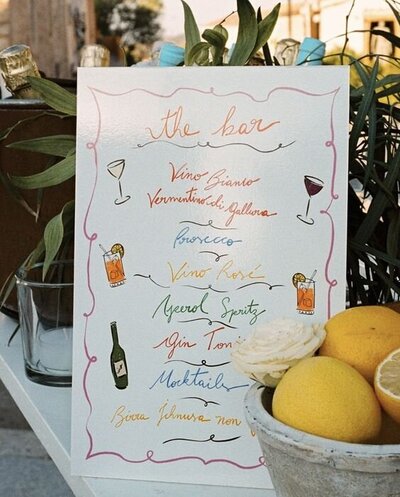 the bar
Vino Bianco
Vermentino di Gallura
Prosecco
Vino Rosé
Aperol Spritz
Gin Toni
Mocktails
Birra Ichnusa non